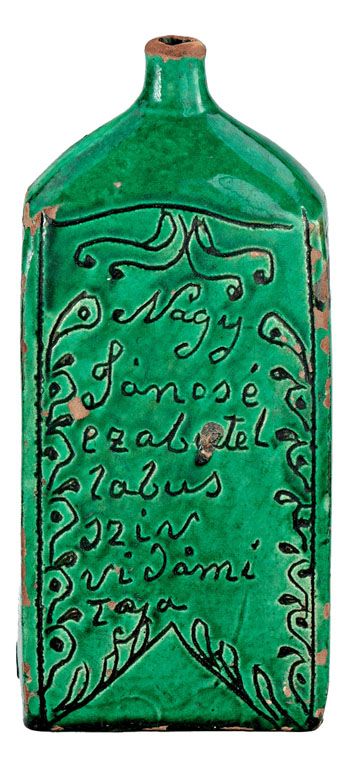 Nagy
Jánosé
ezabutel
labus
sziv
vidámi
taja